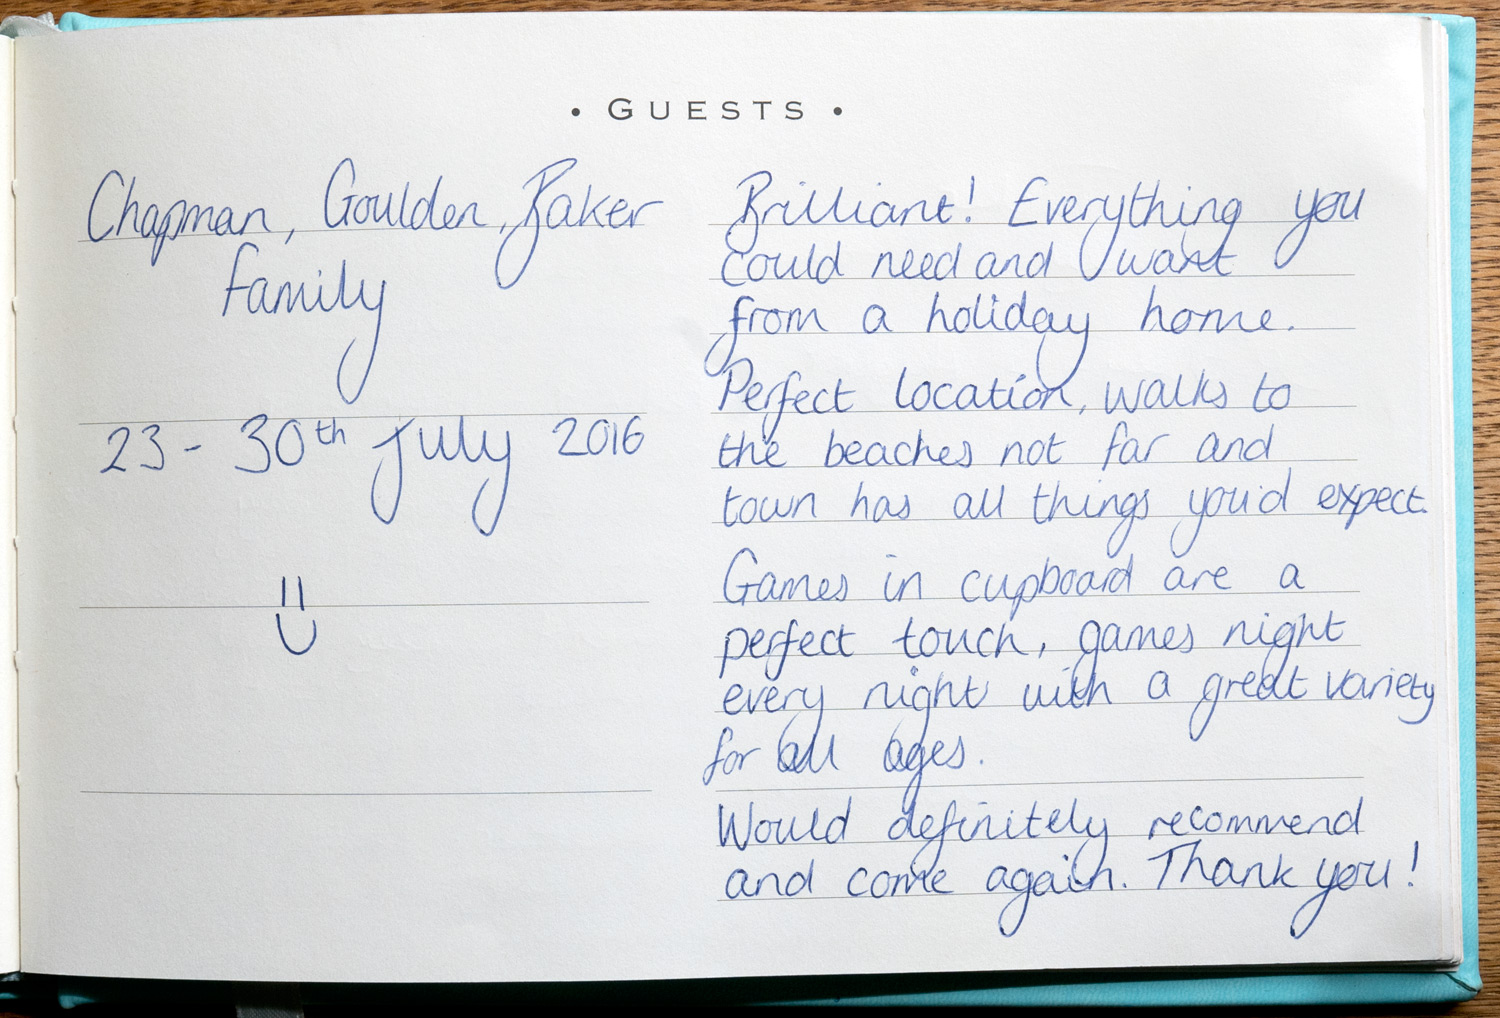 • GUESTS •
Chapman, Goulden, Baker
family
23 - 30th July 2016
Brilliant! Everything you
could need and want
from a holiday home.
Perfect location, walks to
the beaches not far and
town has all things you'd expect.
Games in cupboard are a
perfect touch, games night
every night with a great variety
for all ages.
Would definitely recommend
and come again. Thank you!